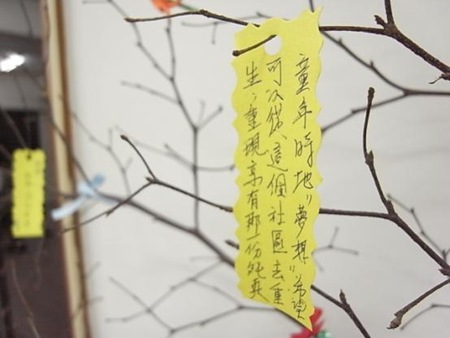 童年時地"夢想"希望
可以這個社區去重
生、重現享有那一份純真